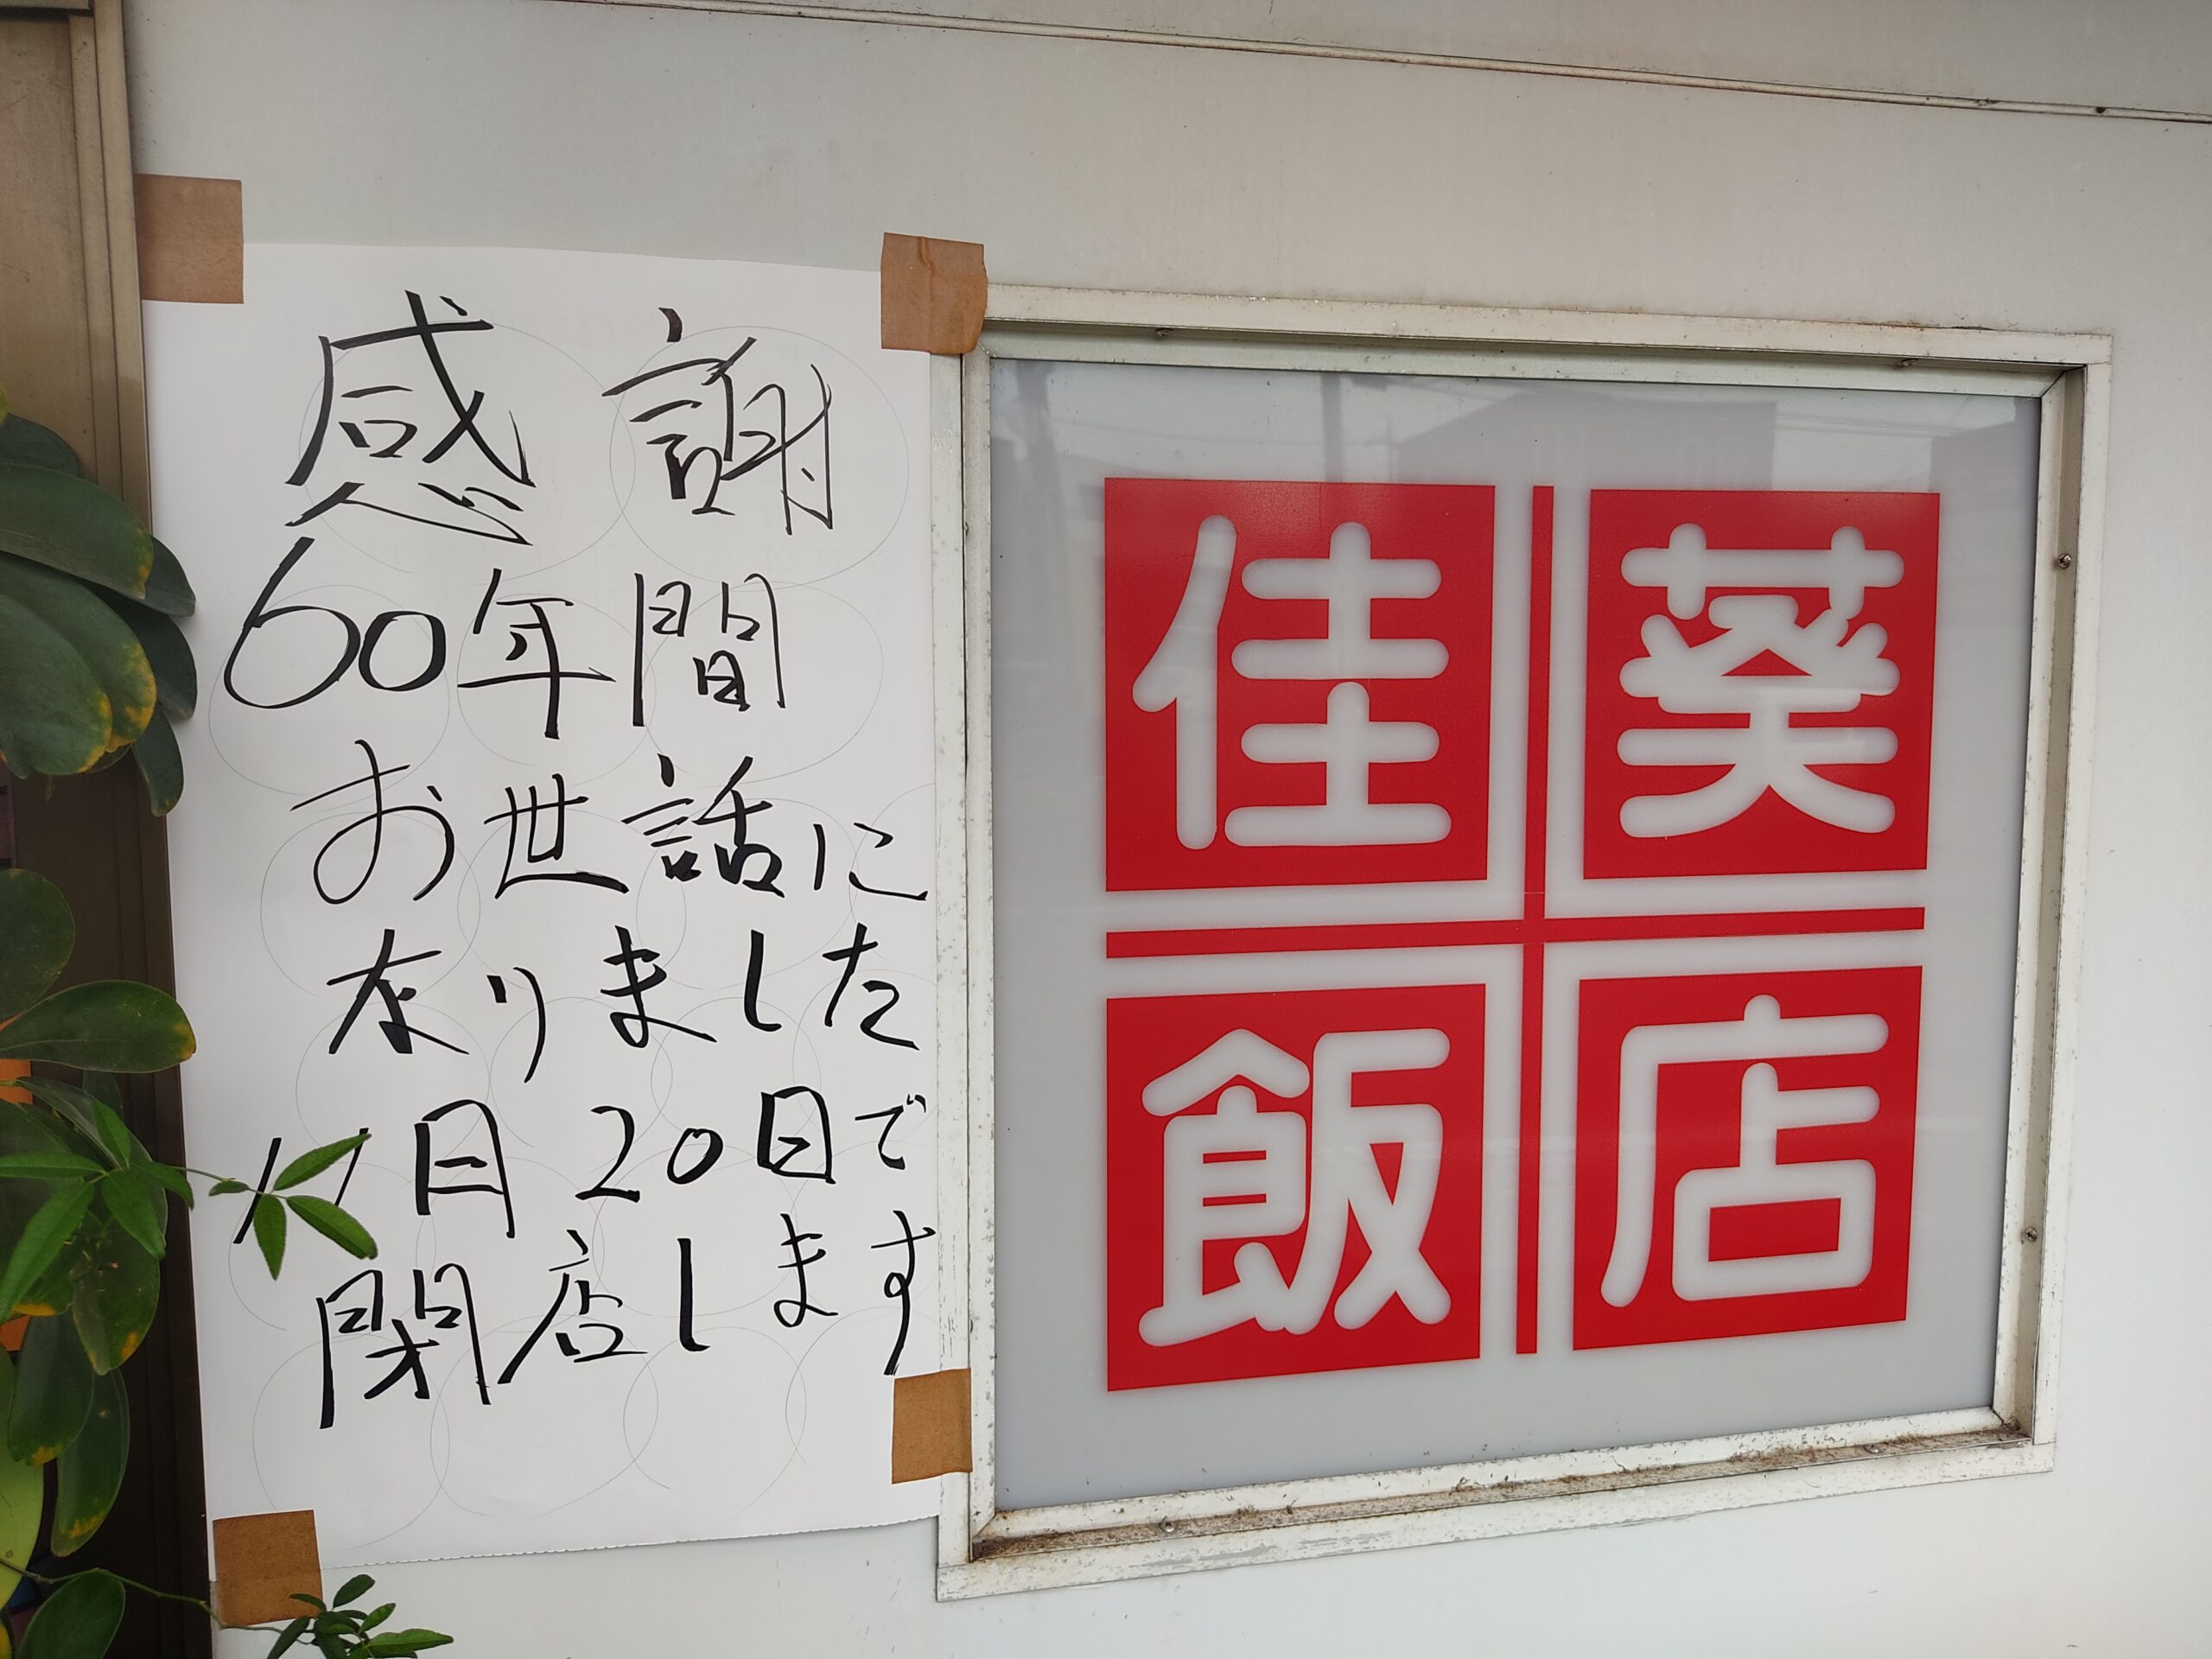 感謝
60年間
お世話に
なりました
11月20日で
閉店します
佳葵
飯店